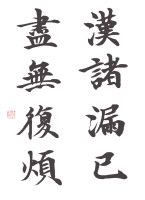 漢諸漏已
盡無復煩